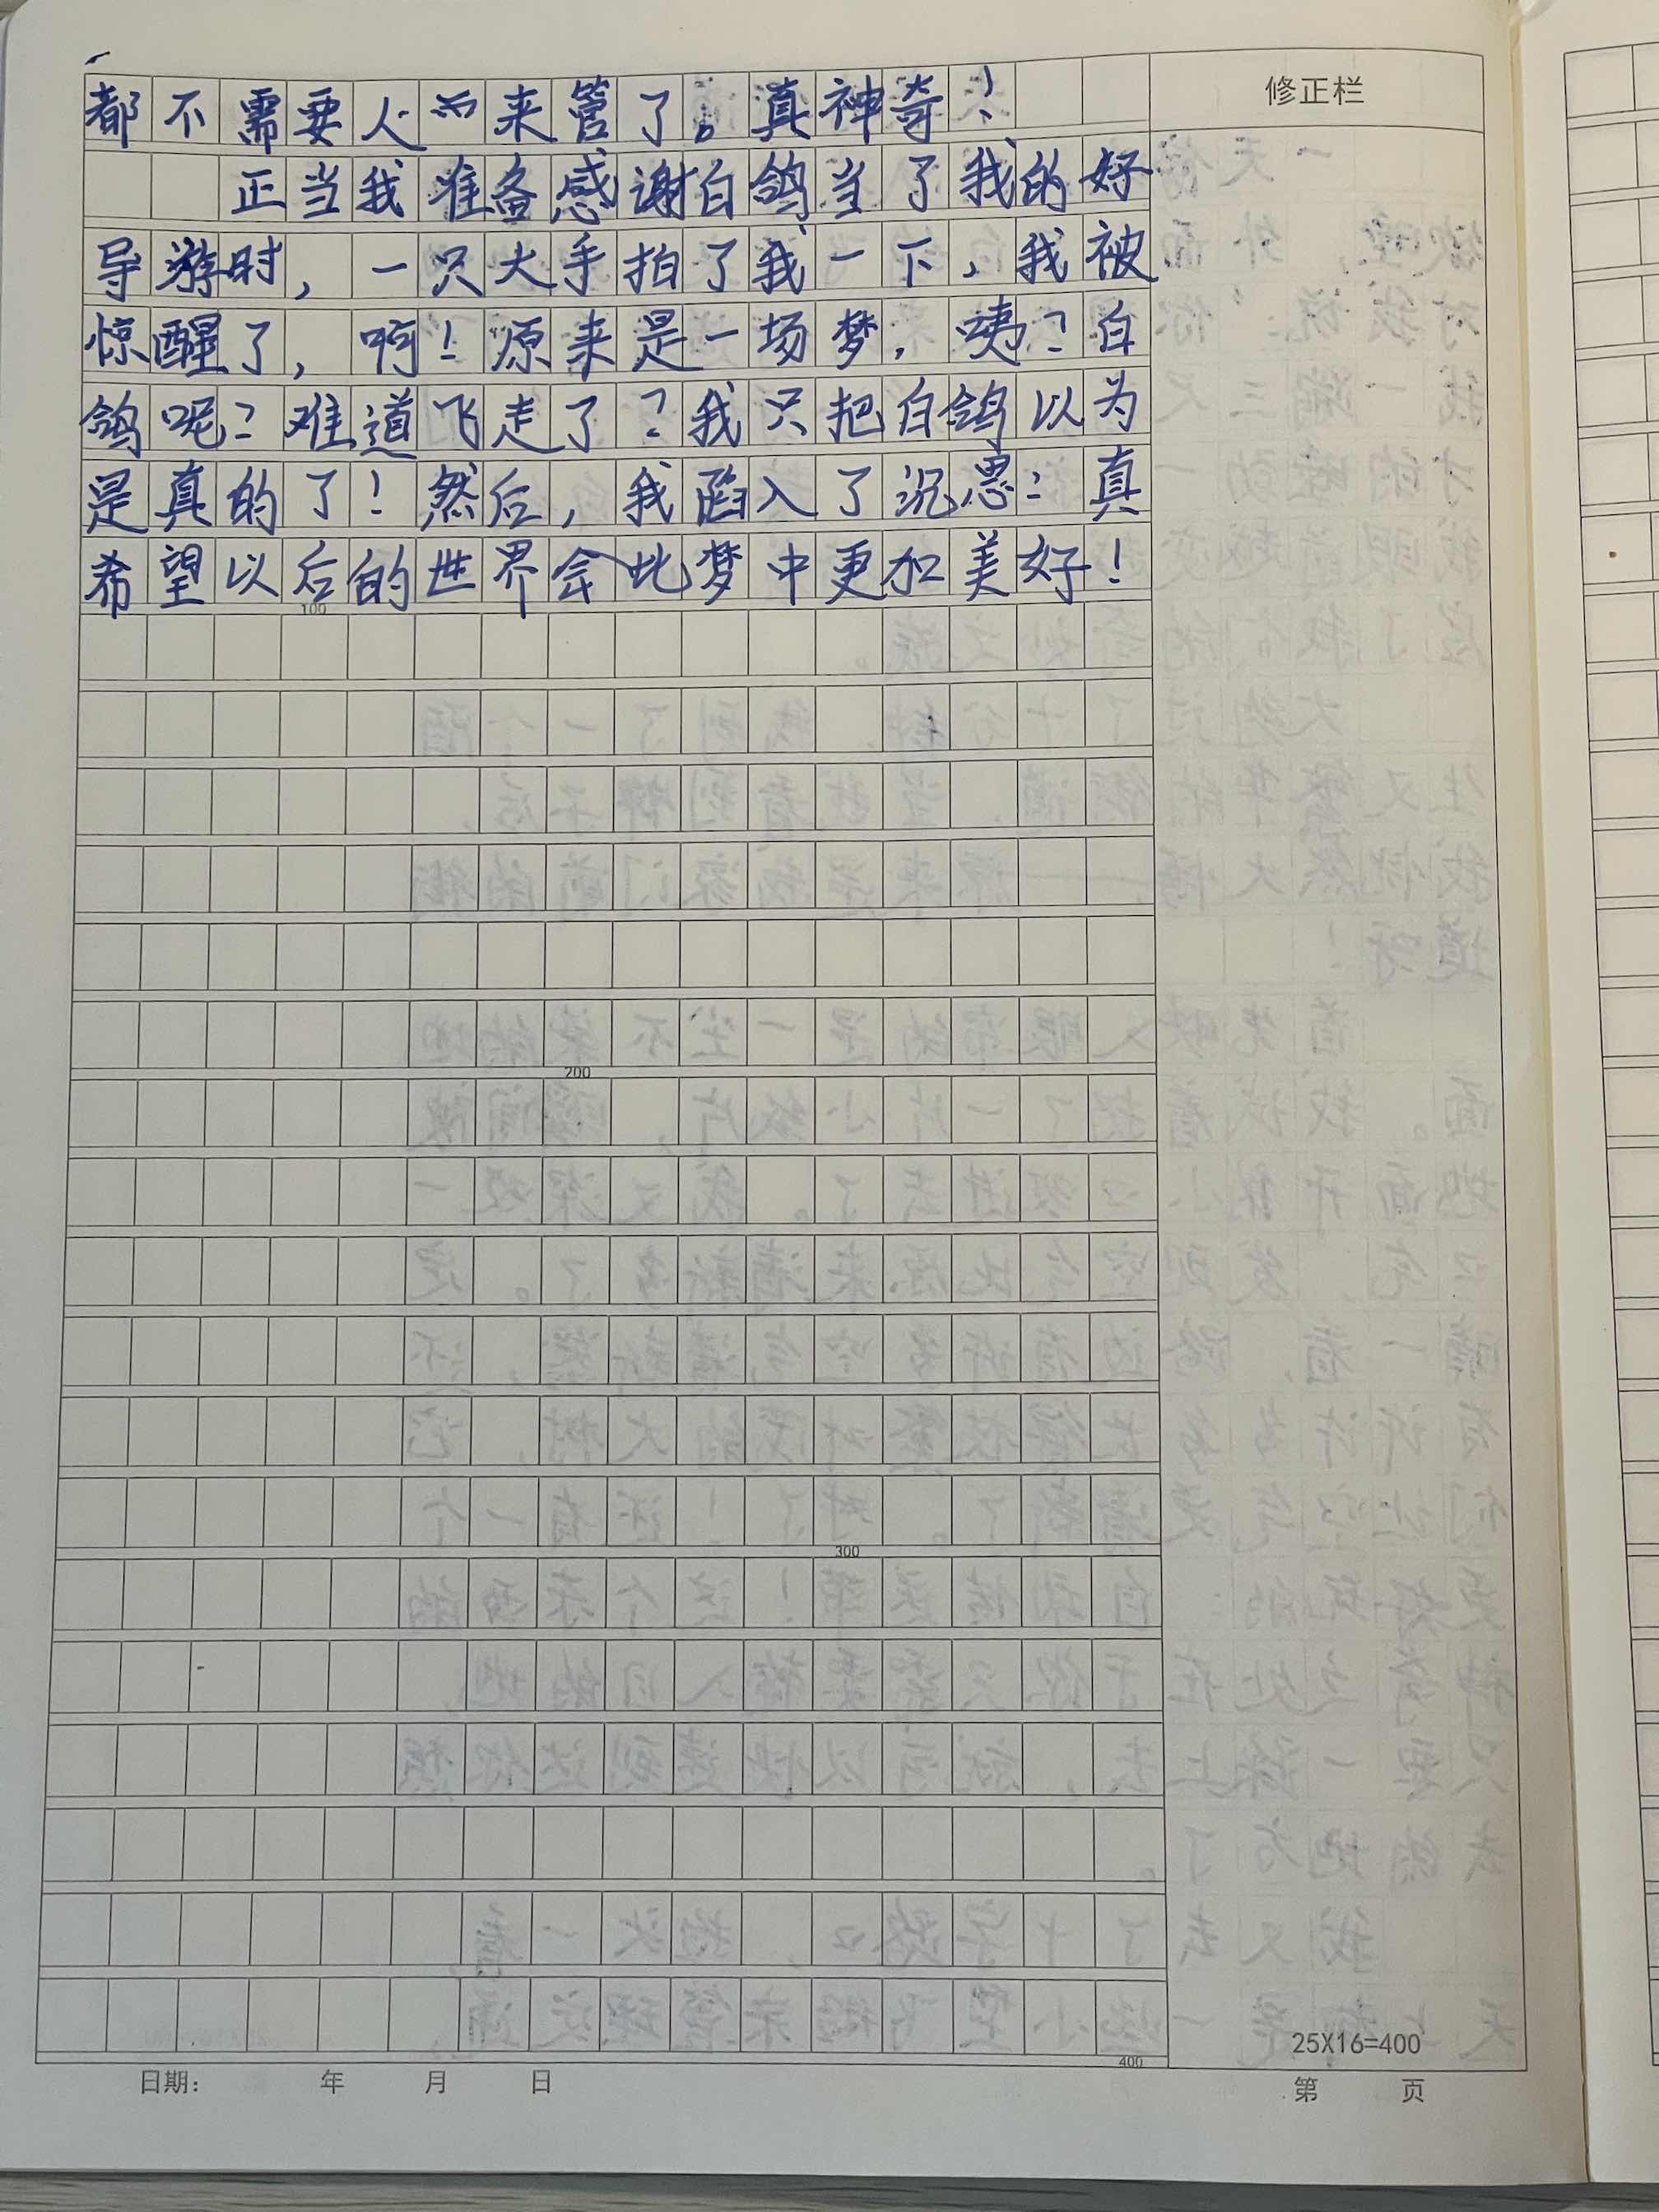 修正栏
都不需要人而来管了。真神奇！
正当我准备感谢白鸽当了我的好
导游时，一只大手拍了我一下，我被
惊醒了，啊！原来是一场梦，咦？白
鸽呢？难道飞走了？我只把白鸽以为
是真的了！然后，我陷入了沉思：真
希望以后的世界会比梦中更加美好！
100
200
300
400
25X16=400
日期： 年 月 日
第 页